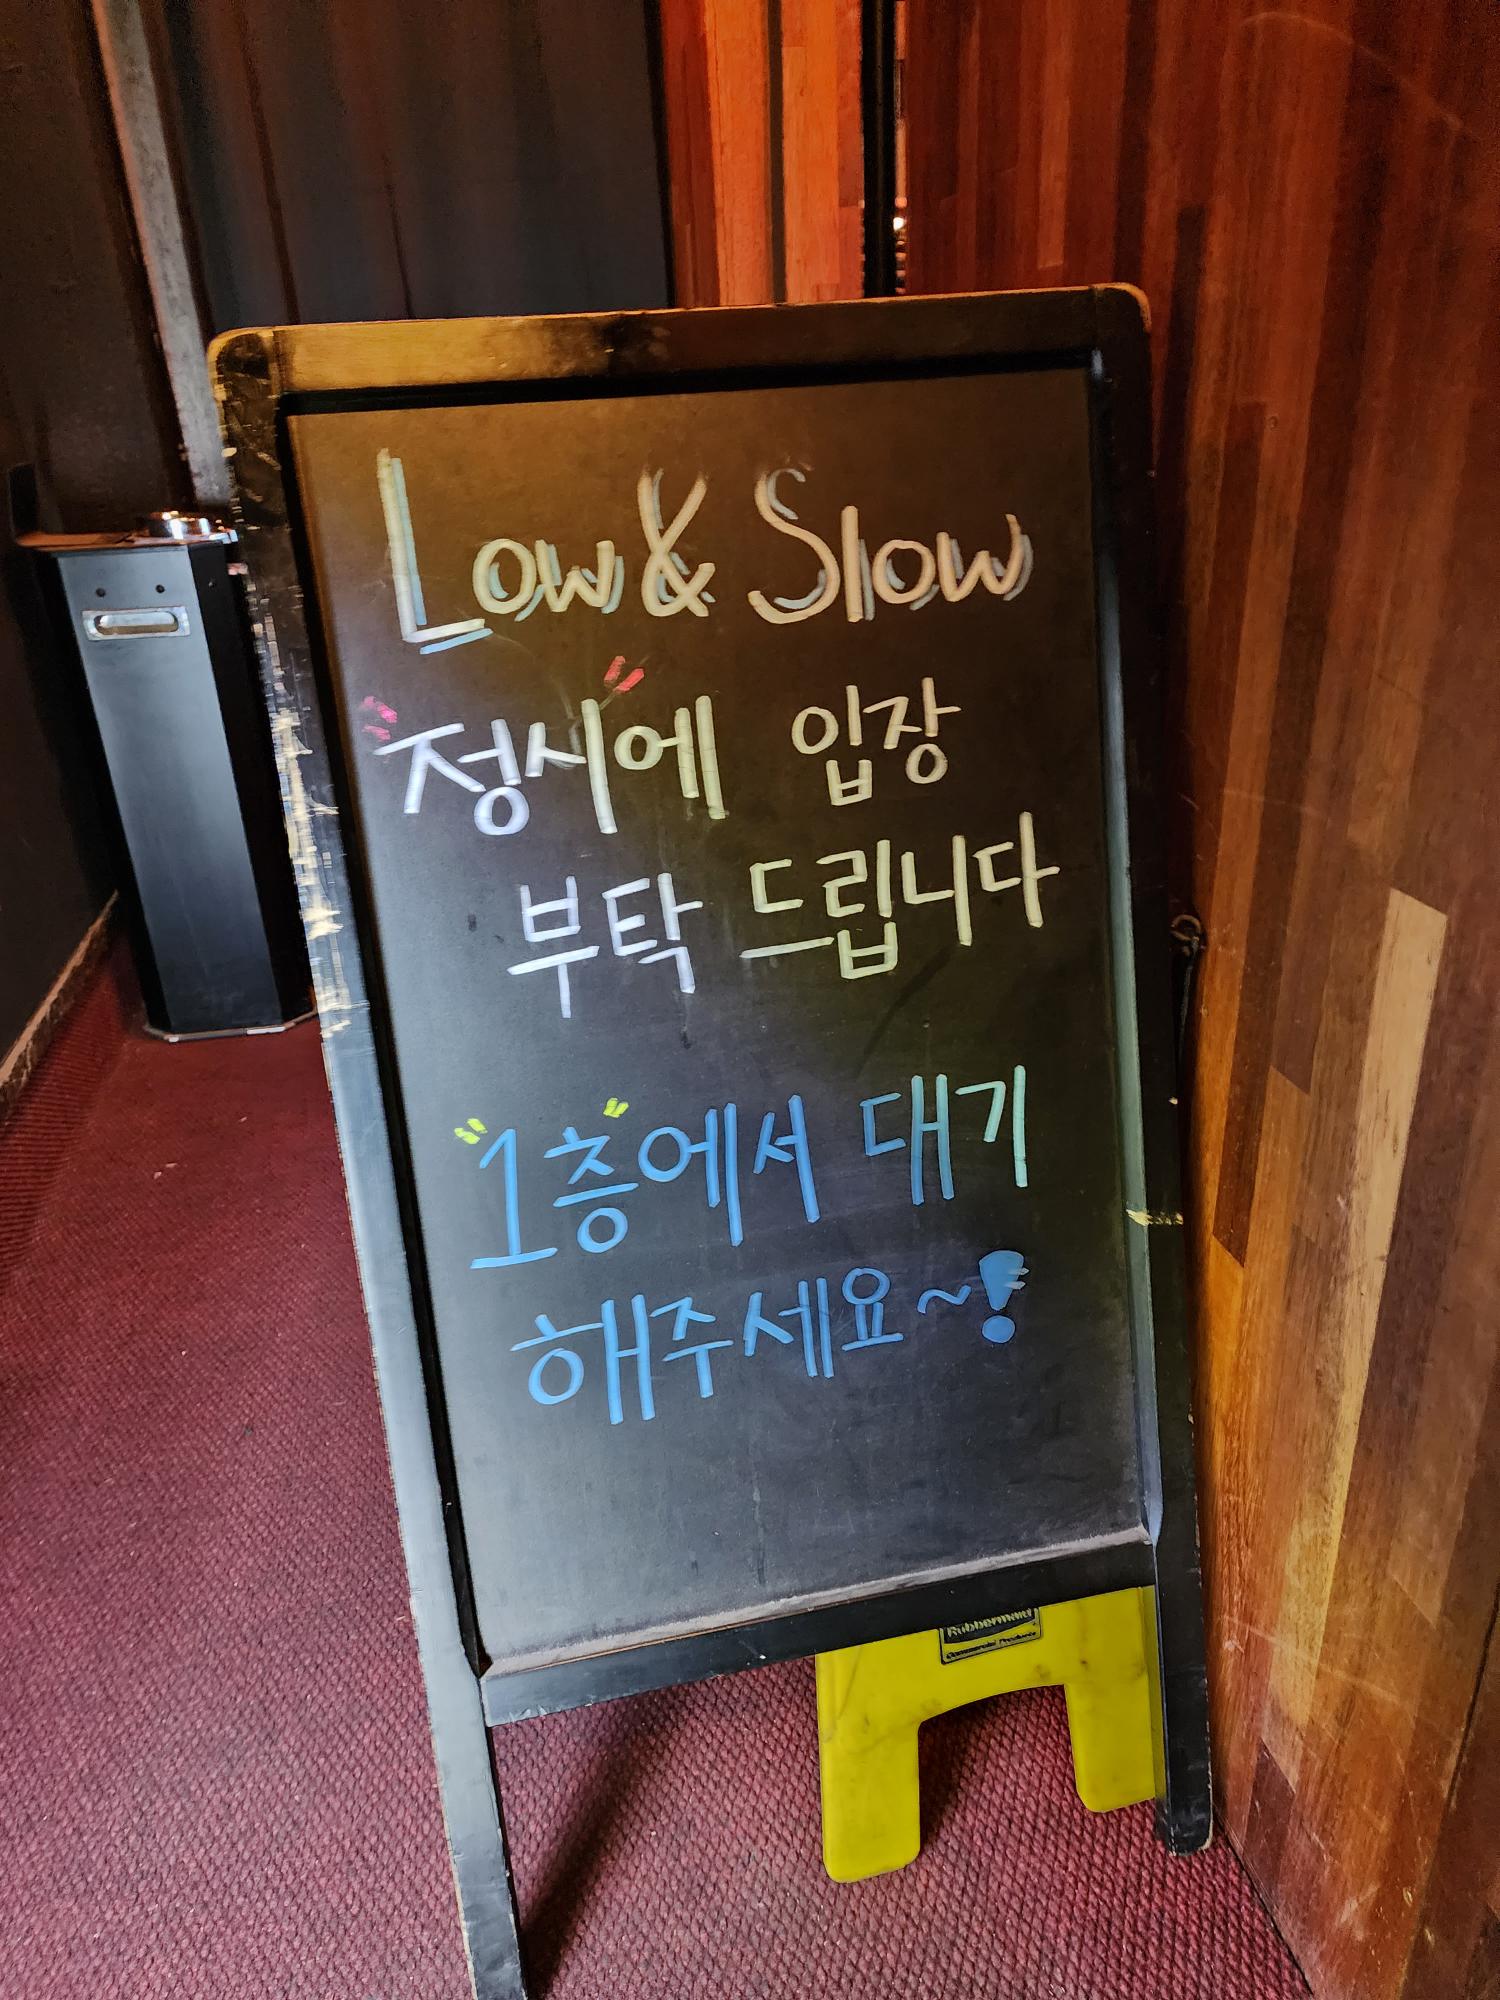 Low & Slow
"정시"에 입장
부탁 드립니다
"1층"에서 대기
해주세요~!
Rubbermaid
Commercial Products